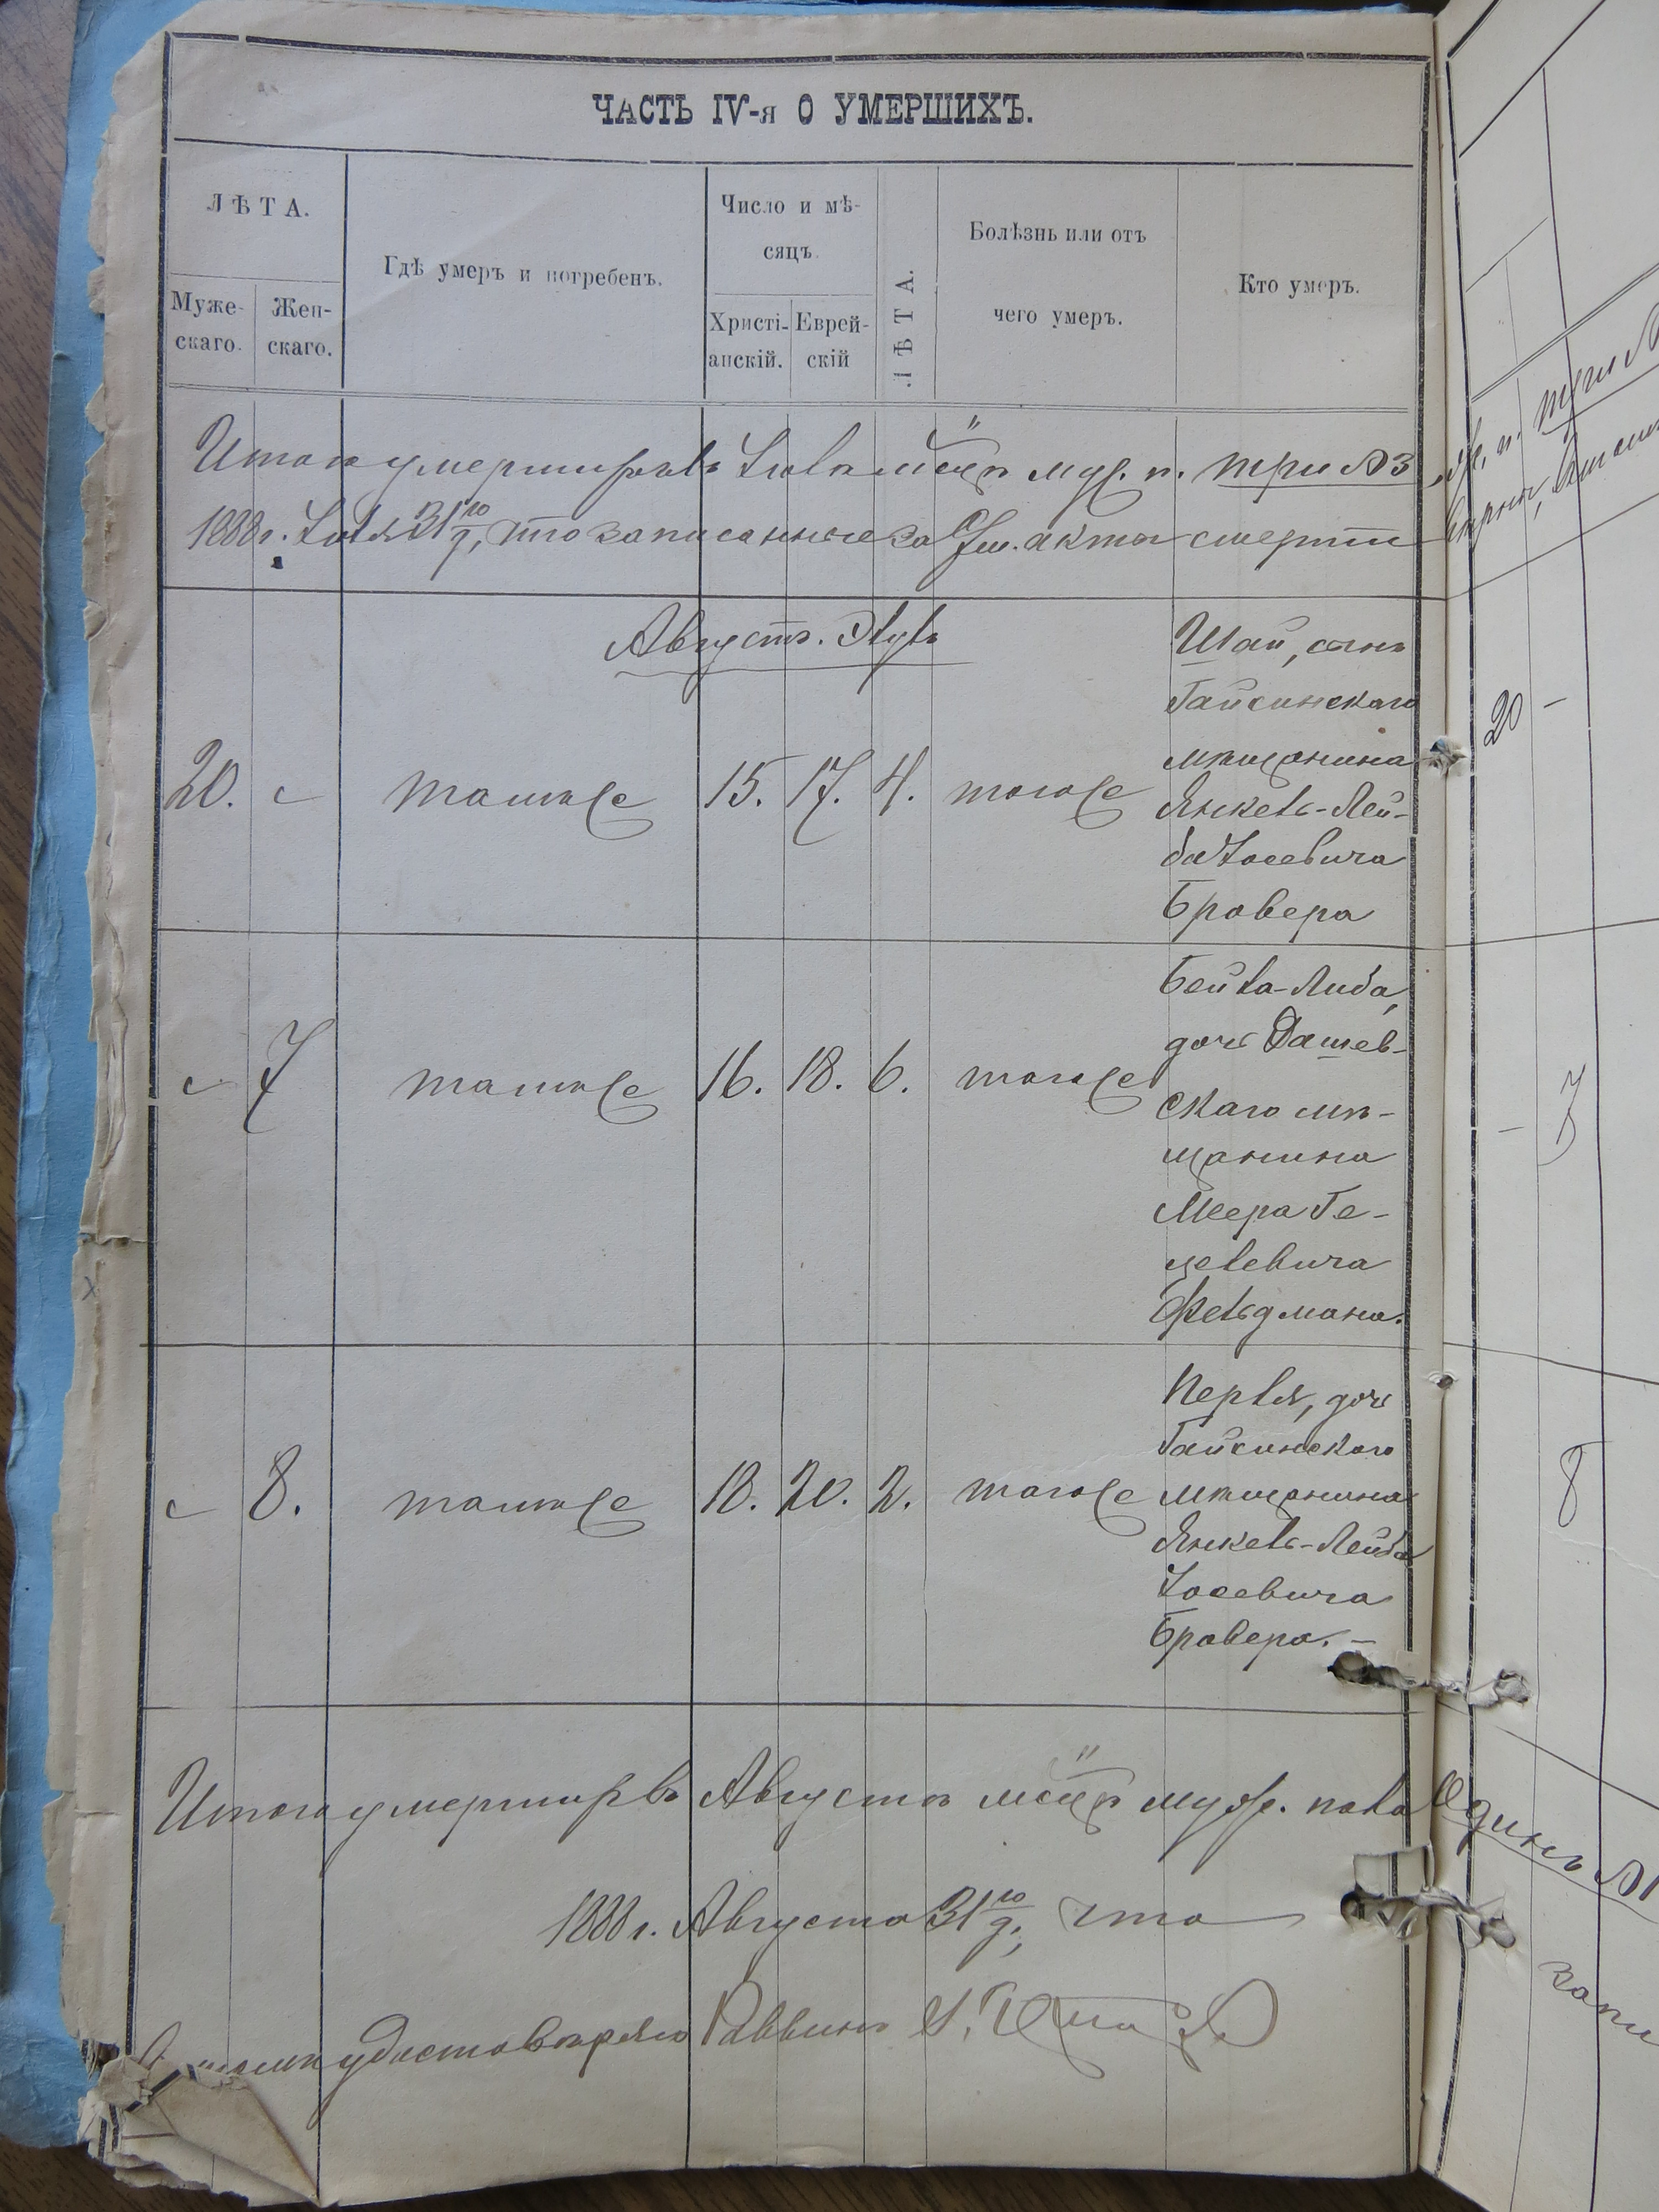 ЧАСТЬ IV-я О УМЕРШИХЪ.
ЛѢТА.
Муже-
скаго.
Жен-
скаго.
Гдѣ умеръ и погребенъ.
Число и мѣ-
сяцъ.
Христі-
анскій.
Еврей-
скій
ЛѢТА.
Болѣзнь или отъ
чего умеръ.
Кто умеръ.
Итого умершихъ въ Іюлѣ м-цѣ муж. п. три №3
1888 г. Іюля 31го д., что записанные за Іюль акты смерти
Августъ. Элулъ
20. - тамже 15. 17. 4. тогоже
Шая, сынъ
Гайсинскаго
мѣщанина
Янкель-Лей-
ба Іосевича
Бровера
- 7 тамже 16. 18. 6. тогоже
Бейла-Либа,
дочь Дашев-
скаго мѣ-
щанина
Меера Ге-
целевича
Фельдмана.
- 8. тамже 18. 20. 2. тогоже
Перля, дочь
Гайсинскаго
мѣщанина
Янкель-Лейба
Іосевича
Бровера. -
Итого умершихъ въ Августѣ м-цѣ муж. пола Одинъ №1
1888 г. Августа 31го д., что
удостовѣряю Раввинъ
20 -
- 7
8
запи